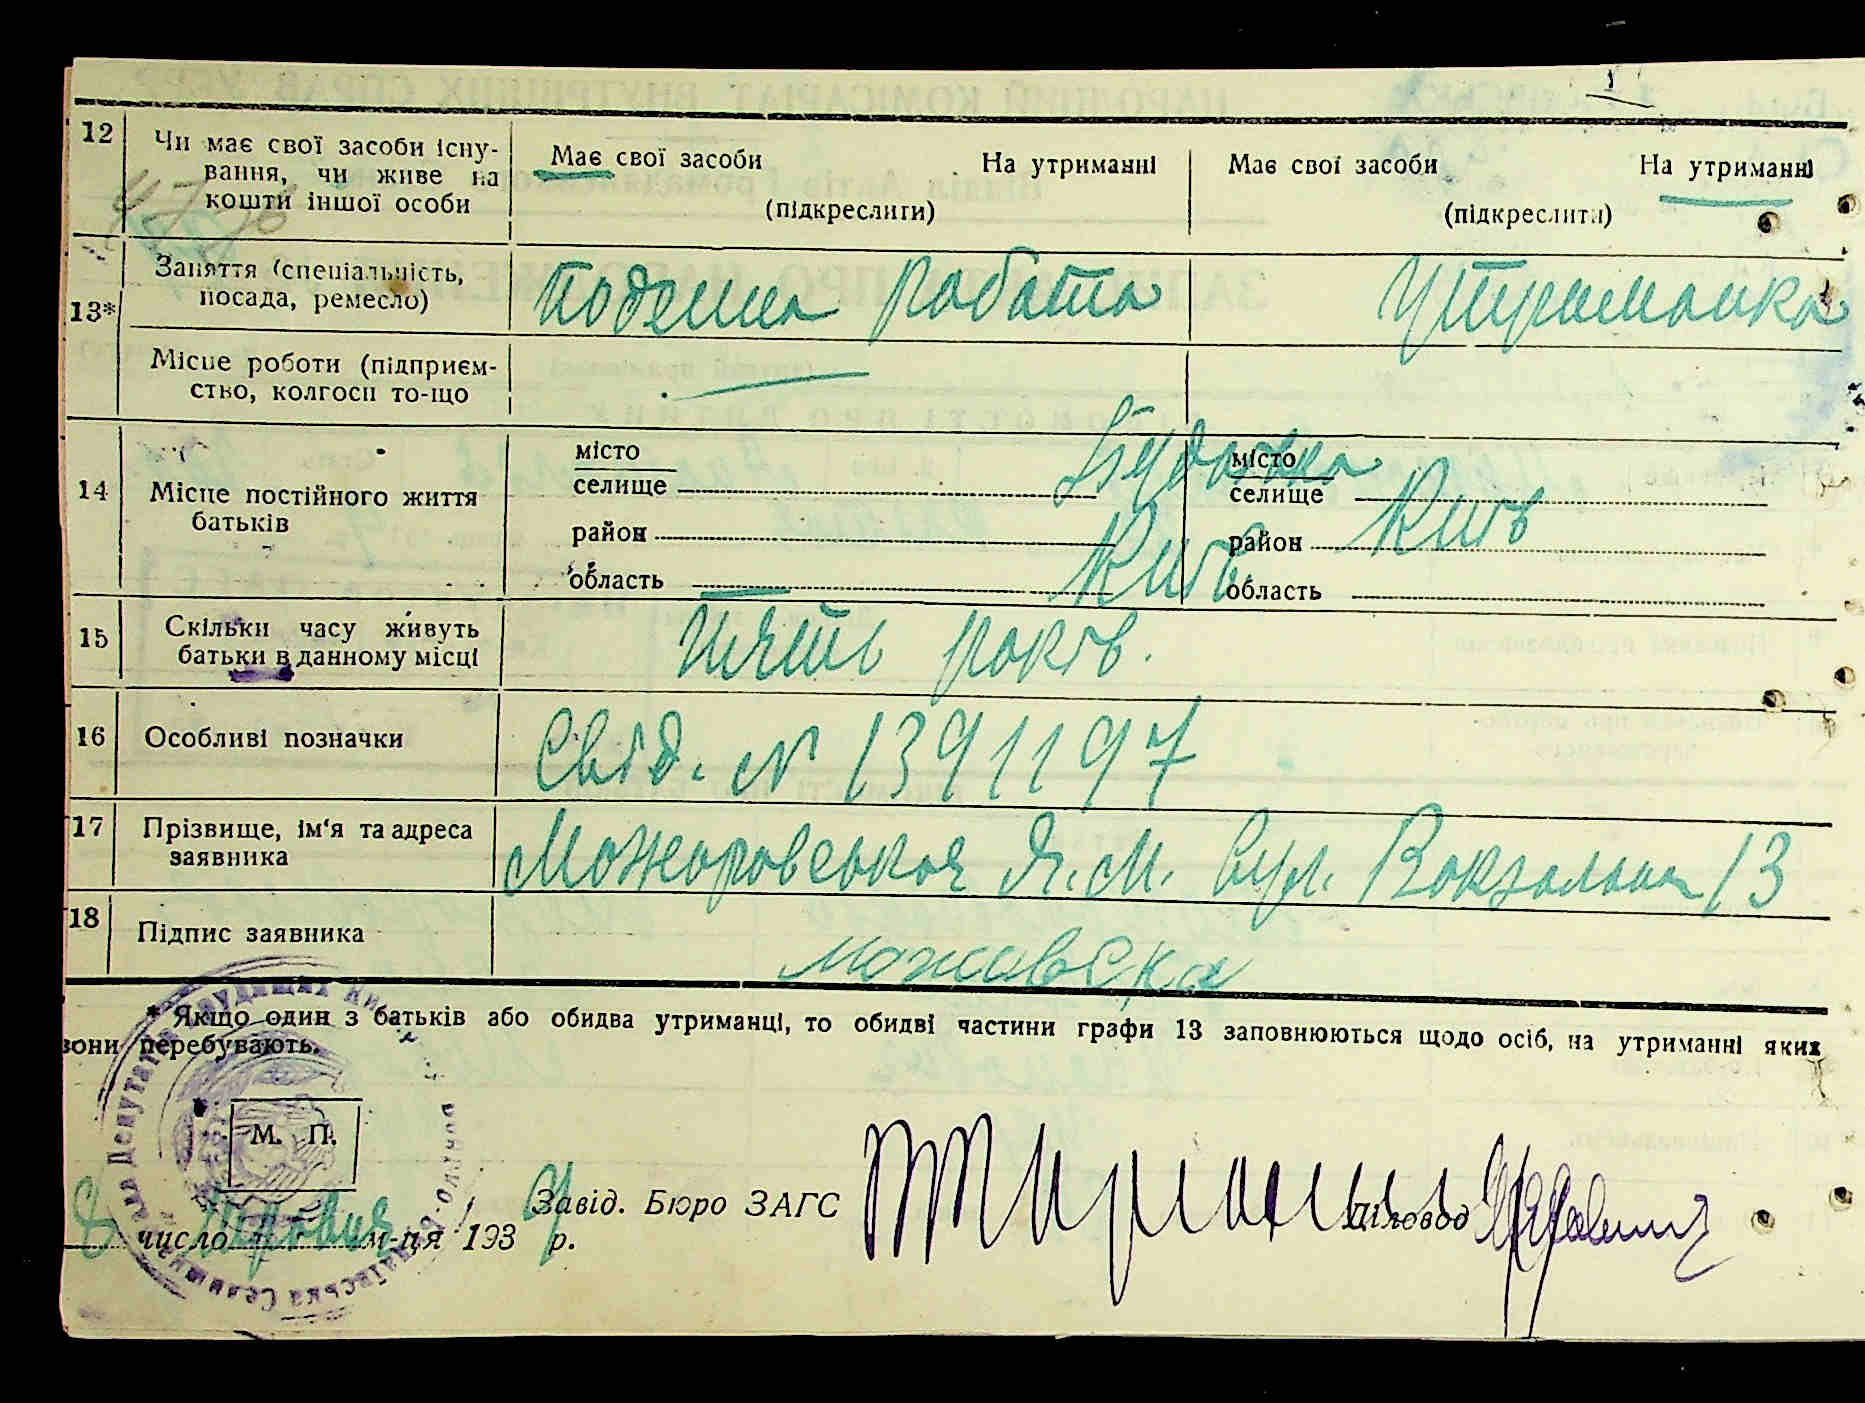 12 Чи має свої засоби існу-
вання, чи живе на
кошти іншої особи
Має свої засоби На утриманні
(підкреслити)
Має свої засоби На утриманні
(підкреслити)
13* Заняття (спеціальність,
посада, ремесло)
Поденна работа
Утриманка
Місце роботи (підприєм-
ство, колгосп то-що
14 Місце постійного життя
батьків
місто
селище
район
область Київ
місто
селище
район Київ
область
15 Скільки часу живуть
батьки в данному місці
Пять років.
16 Особливі позначки
Свід. № 1391197
17 Прізвище, ім'я та адреса
заявника
Можаровськая Я. М. вул. Вокзальна 13
18 Підпис заявника
* Якщо один з батьків або обидва утриманці, то обидві частини графи 13 заповнюються щодо осіб, на утриманні яких
вони перебувають.
М. П.
Завід. Бюро ЗАГС
Діловод
8 число м-ця 193 р.